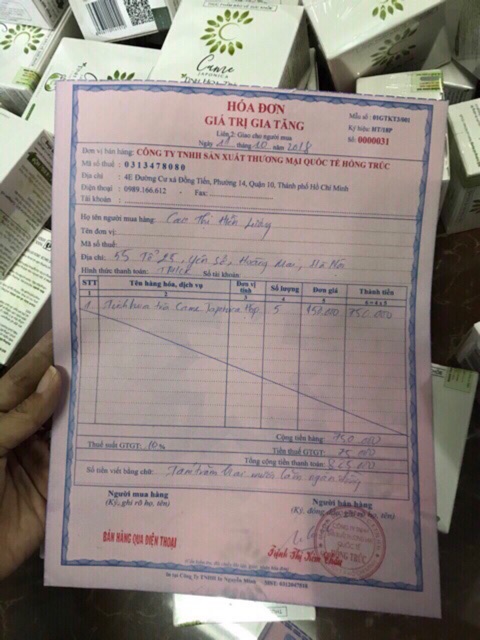 Came
JAPONICA
HÓA ĐƠN
GIÁ TRỊ GIA TĂNG
Liên 2: Giao cho người mua
Ngày 18 tháng 10 năm 2018
Mẫu số: 01GTKT3/001
Ký hiệu: HT/18P
Số: 0000031
Đơn vị bán hàng: CÔNG TY TNHH SẢN XUẤT THƯƠNG MẠI QUỐC TẾ HỒNG TRÚC
Mã số thuế : 0313478080
Địa chỉ : 4E Đường Cư xá Đồng Tiến, Phường 14, Quận 10, Thành phố Hồ Chí Minh
Điện thoại : 0989.166.612 - Fax:
Tài khoản :
Họ tên người mua hàng: Cao Thị Hiền Lương
Tên đơn vị:
Mã số thuế:
Địa chỉ: 55 Tổ 25, Yên Sở, Hoàng Mai, Hà Nội
Hình thức thanh toán: TM/CK Số tài khoản:
STT Tên hàng hóa, dịch vụ Đơn vị tính Số lượng Đơn giá Thành tiền
1 2 3 4 5 6=4x5
1 Came Japonica Hộp 5 150.000 750.000
Cộng tiền hàng: 750.000
Thuế suất GTGT: 10 % Tiền thuế GTGT: 75.000
Tổng cộng tiền thanh toán: 825.000
Số tiền viết bằng chữ: Tám trăm hai mươi lăm ngàn đồng
Người mua hàng Người bán hàng
(Ký, ghi rõ họ, tên) (Ký, đóng dấu, ghi rõ họ, tên)
BÁN HÀNG QUA ĐIỆN THOẠI
QUỐC TẾ
HỒNG TRÚC
Trịnh Thị Kim Châu